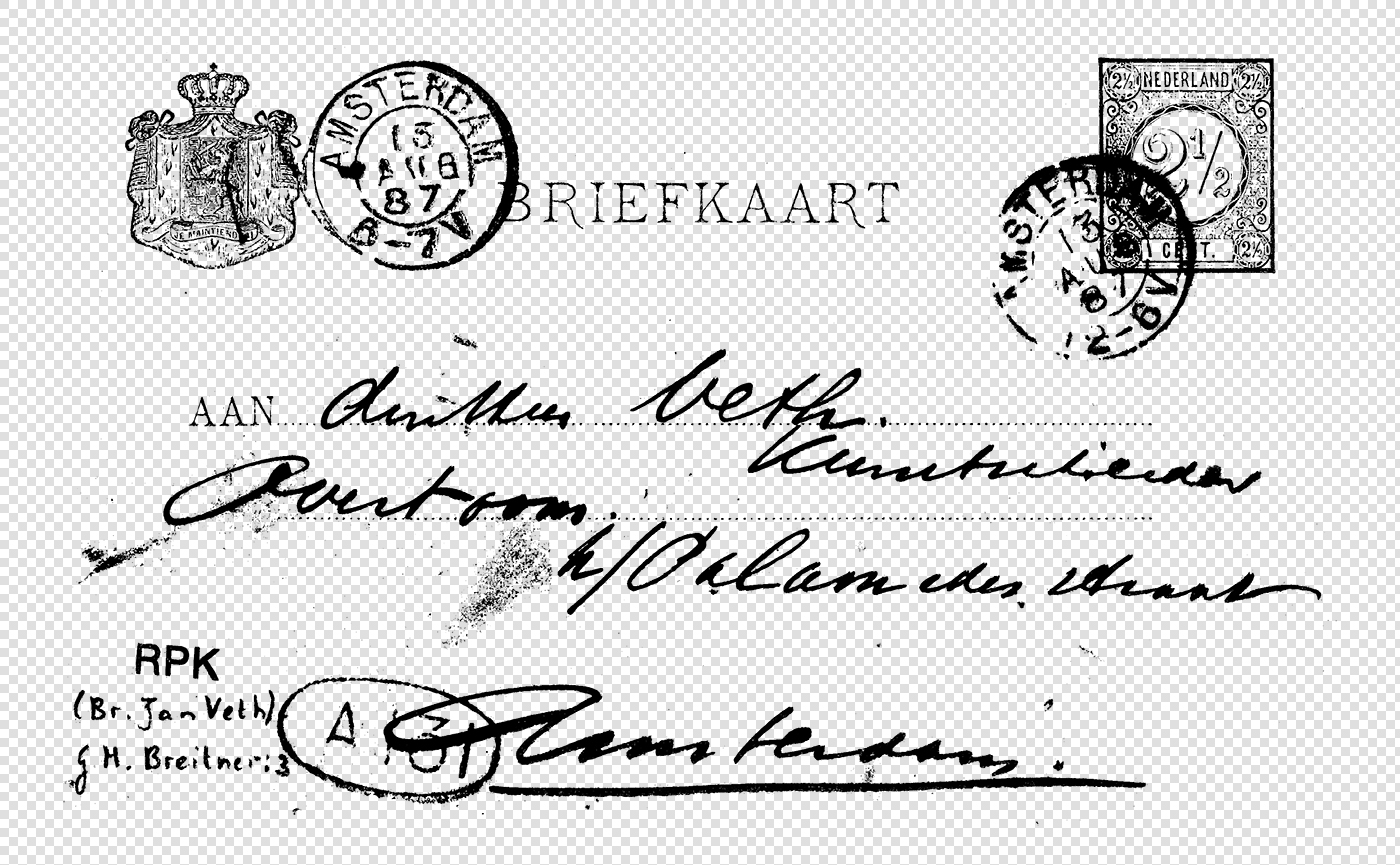 AMSTERDAM
13
AUG
87
6-7V
JE MAINTIENDRAI
BRIEFKAART
2½ NEDERLAND 2½
2½
CENT. 2½
AMSTERDAM
13
AU
87
12-6V
AAN den Heer Veth.
Kunstschilder
Overtoom.
h/Palamedes straat
RPK
(Br. Jan Veth)
G H. Breitner: 3
Amsterdam.